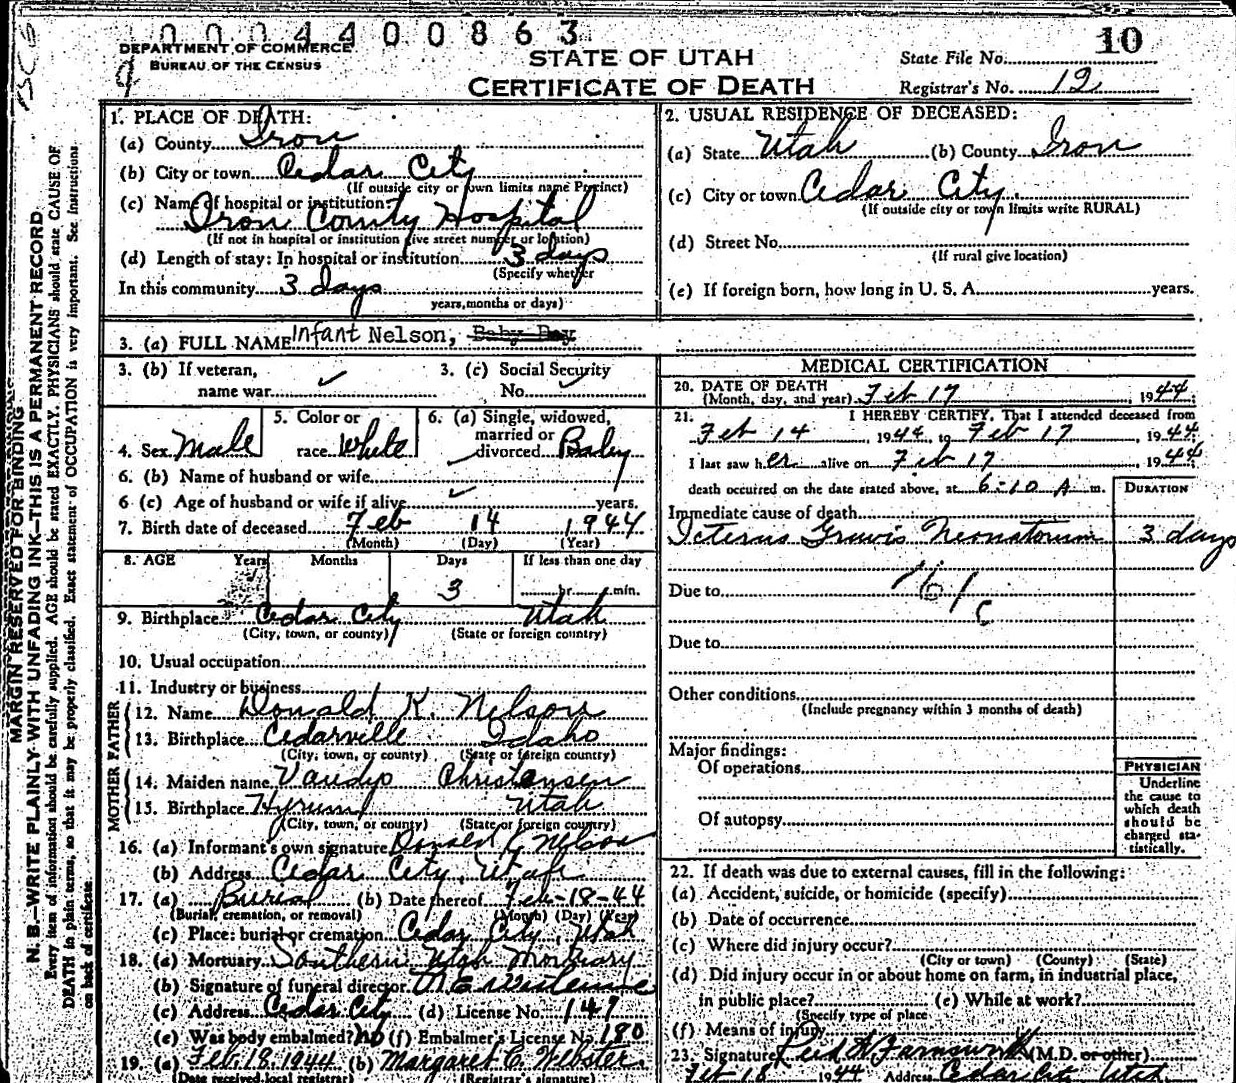 0 0 0 4 4 0 0 8 6 3
10
DEPARTMENT OF COMMERCE
BUREAU OF THE CENSUS
STATE OF UTAH
CERTIFICATE OF DEATH
State File No.
Registrar's No. 12
MARGIN RESERVED FOR BINDING
N. B.—WRITE PLAINLY WITH UNFADING INK—THIS IS A PERMANENT RECORD
Every item of information should be carefully supplied. AGE should be stated EXACTLY. PHYSICIANS should state CAUSE OF
DEATH in plain terms, so that it may be properly classified. Exact statement of OCCUPATION is very important. See Instructions
on back of certificate.
1. PLACE OF DEATH:
(a) County Iron
(b) City or town Cedar City
(If outside city or town limits name Precinct)
(c) Name of hospital or institution:
Iron County Hospital
(If not in hospital or institution give street number or location)
(d) Length of stay: In hospital or institution 3 days
(Specify whether
In this community 3 days
years, months or days)
2. USUAL RESIDENCE OF DECEASED:
(a) State Utah (b) County Iron
(c) City or town Cedar City.
(If outside city or town limits write RURAL)
(d) Street No.
(If rural give location)
(e) If foreign born, how long in U. S. A. years.
3. (a) FULL NAME Infant Nelson, Baby Boy
3. (b) If veteran,
name war ✓
3. (c) Social Security
No. ✓
4. Sex Male
5. Color or
race White
6. (a) Single, widowed,
married or
divorced Baby
6. (b) Name of husband or wife
6 (c) Age of husband or wife if alive years.
7. Birth date of deceased Feb 14 1944
(Month) (Day) (Year)
8. AGE Years Months Days If less than one day
3 hr. min.
9. Birthplace Cedar City Utah
(City, town, or county) (State or foreign country)
10. Usual occupation
11. Industry or business
FATHER
12. Name Donald K. Nelson
13. Birthplace Cedarville Idaho
(City, town, or county) (State or foreign country)
MOTHER
14. Maiden name Christensen
15. Birthplace Hyrum Utah
(City, town, or county) (State or foreign country)
16. (a) Informant's own signature Donald K Nelson
(b) Address Cedar City, Utah
17. (a) Burial (b) Date thereof Feb-18-44
(Burial, cremation, or removal) (Month) (Day) (Year)
(c) Place: burial or cremation Cedar City, Utah
18. (a) Mortuary Southern Utah Mortuary
(b) Signature of funeral director
(c) Address Cedar City (d) License No. 147
(e) Was body embalmed? no (f) Embalmer's License No. 180
19. (a) Feb. 18, 1944 (b) Margaret C. Webster
(Date received local registrar) (Registrar's signature)
MEDICAL CERTIFICATION
20. DATE OF DEATH
(Month, day, and year) Feb 17, 1944;
21. I HEREBY CERTIFY, That I attended deceased from
Feb 14, 1944, to Feb 17, 1944;
I last saw her alive on Feb 17, 1944;
death occurred on the date stated above, at 6:10 A. m.
DURATION
Immediate cause of death
Icterus Gravis Neonatorum 3 days
Due to 161c
Due to
Other conditions
(Include pregnancy within 3 months of death)
Major findings:
Of operations
Of autopsy
PHYSICIAN
Underline
the cause to
which death
should be
charged sta-
tistically.
22. If death was due to external causes, fill in the following:
(a) Accident, suicide, or homicide (specify)
(b) Date of occurrence
(c) Where did injury occur?
(City or town) (County) (State)
(d) Did injury occur in or about home on farm, in industrial place,
in public place? (e) While at work?
(Specify type of place
(f) Means of injury
23. Signature Reed W Farnsworth (M.D. or other)
Feb 18 1944 Address Cedar City Utah